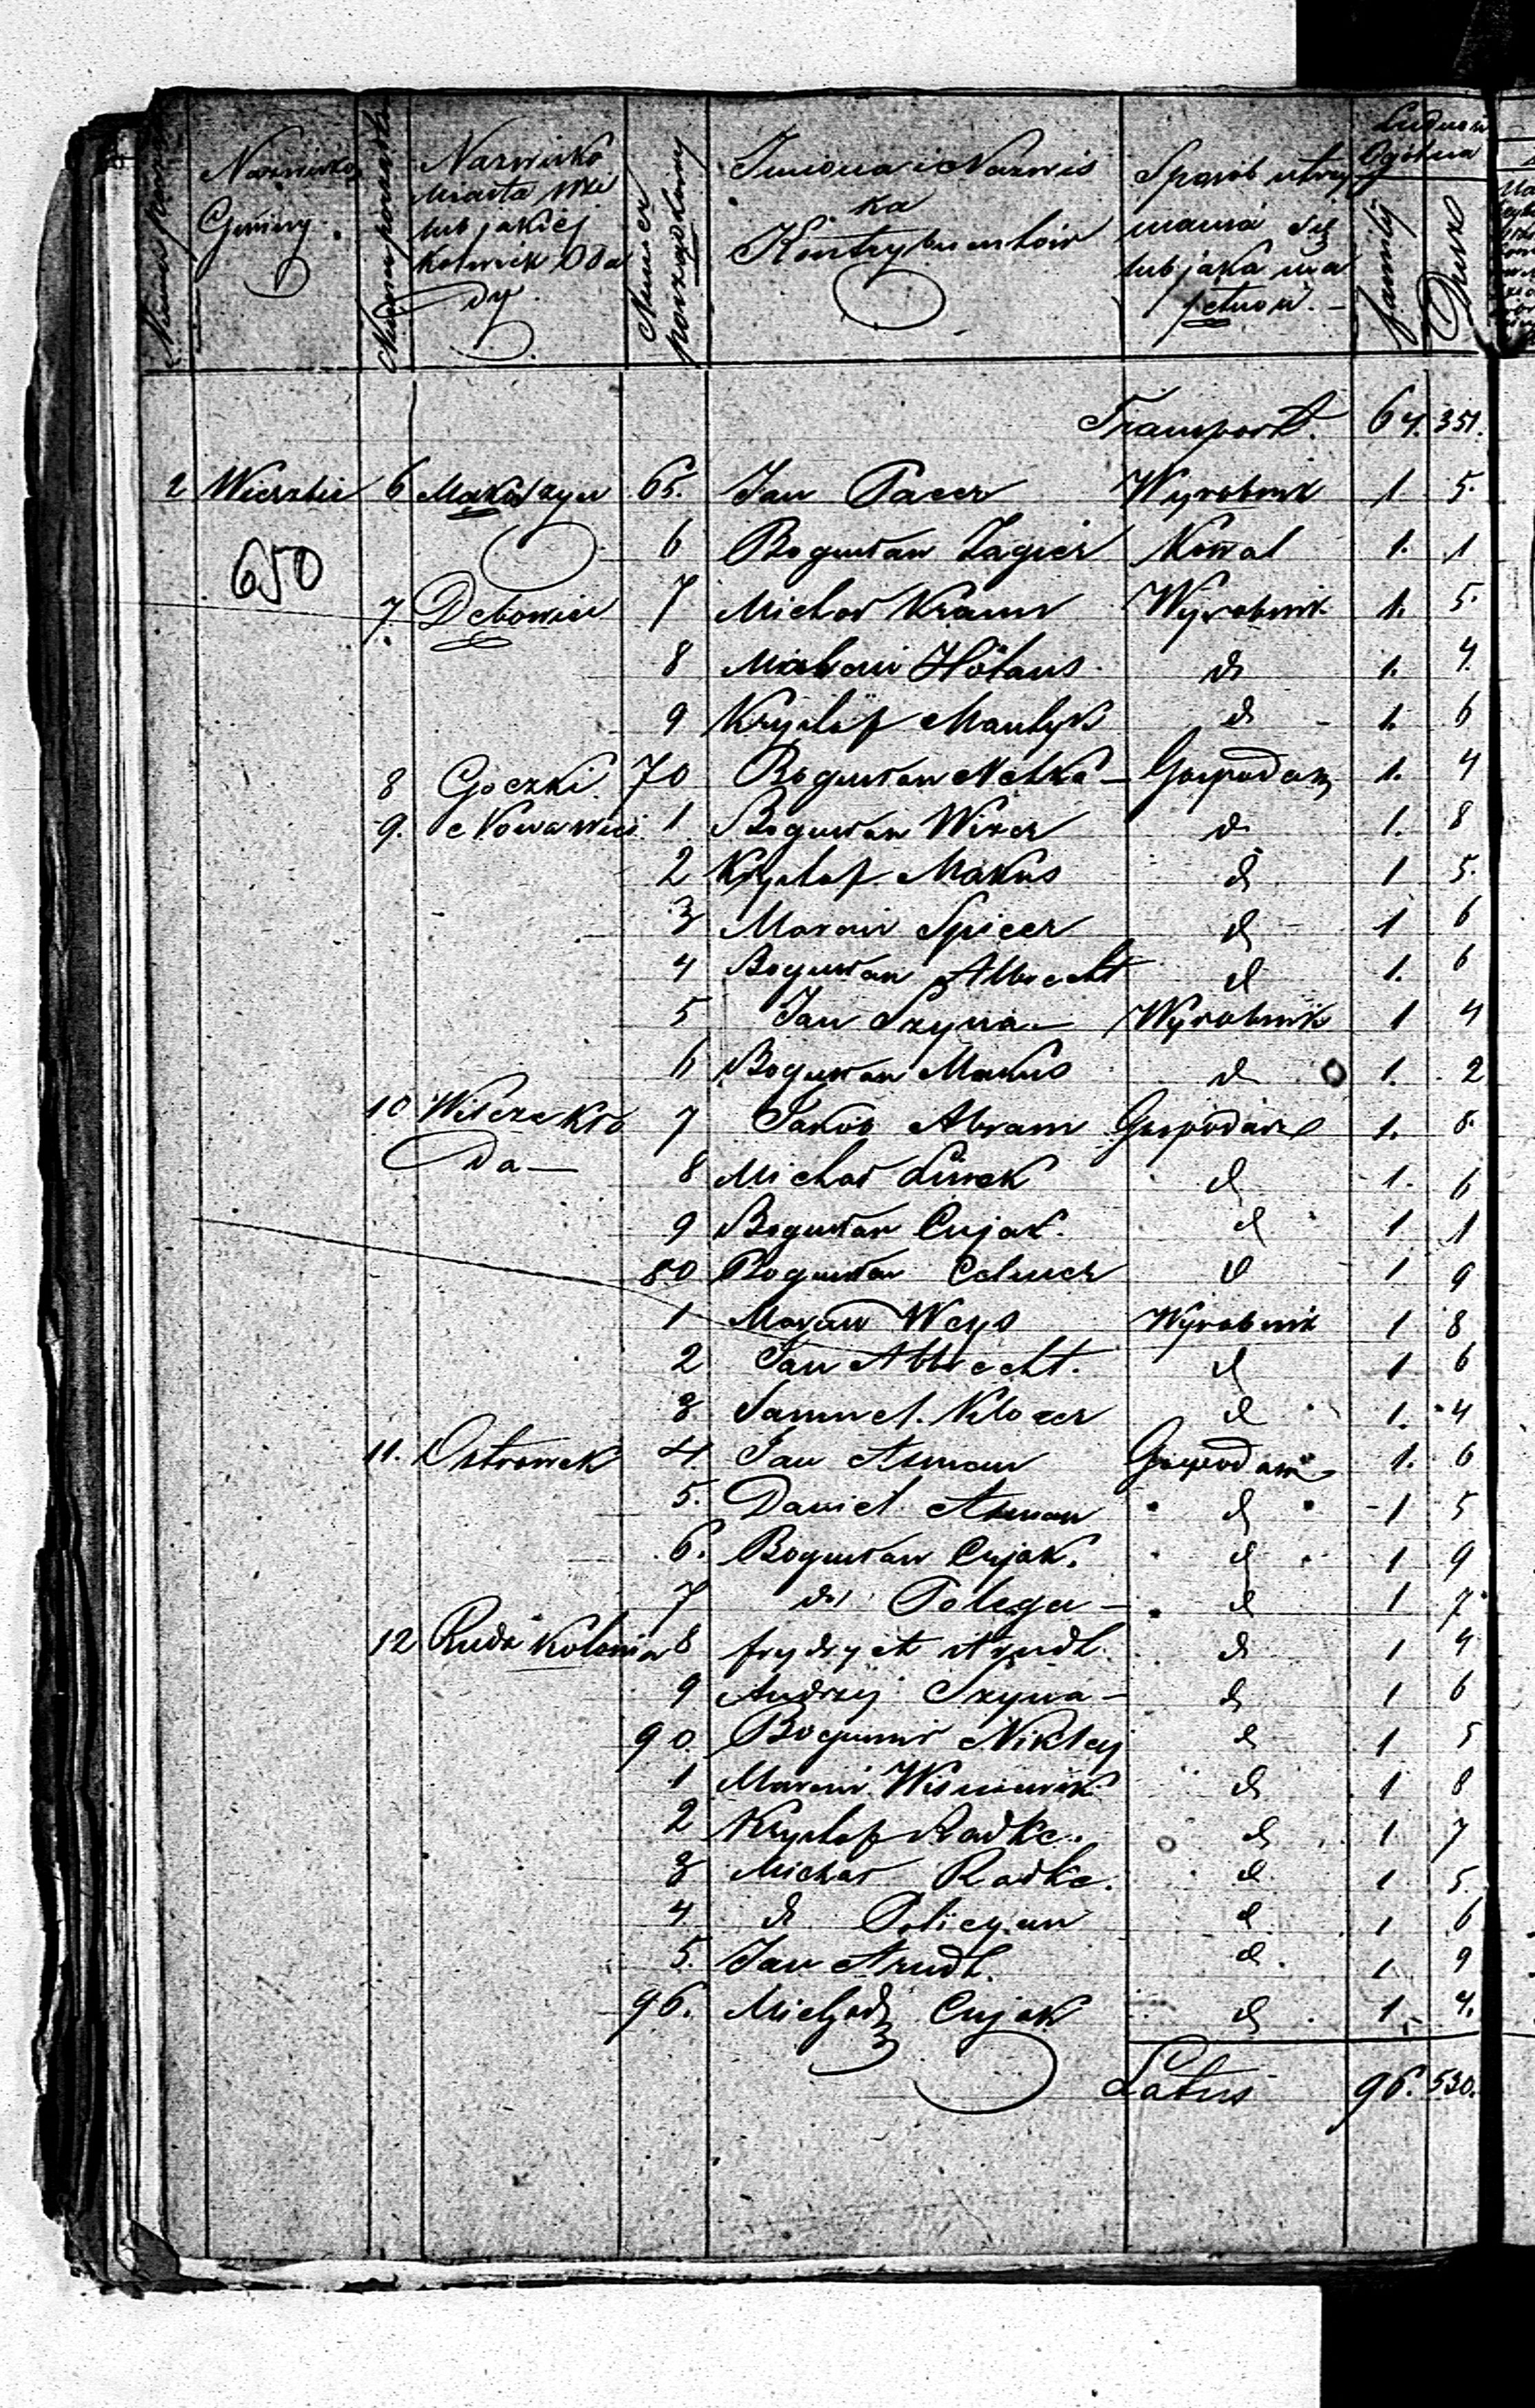 Nazwisko Gminy.
Nazwisko Miasta Wsi lub jakiéj kolwiek Osady
Numer porządkowy
Imiona i Nazwiska Kontrybuentów
Sposób utrzymania się lub jaka majętność.
Ludność Ogólna
Familij
Dusz
Transport. 64. 351.
2 Wierzbie 6 65. Jan Pacer Wyrobnik 1. 5.
6 Bogusław Zagier Kowal 1. 1
650
7 Dębowiec 7 Michał Kramr Wyrobnik 1. 5.
8 Hötans d 1. 4.
9 Krysztof Mantyk d 1. 6
8 Goczki 70 Bogusław Netka Gospodarz 1. 4
9. Nowawieś 1 Bogusław Wixer d 1. 8
2 Krysztof Makus d 1 5.
3 Marcin Spicer d 1 6
4 Bogusław Albrecht d 1. 6
5 Jan Szyma Wyrobnik 1 4
6 Bogusław Makus d 1. 2
10 Wilcza Kłoda 7 Jakób Abram Gospodarz 1. 5.
8 Michał Lürek d 1. 6
9 Bogusław Cujak. d 1 1
80 Bogusław Celmer d 1 9
1 Marcin Weys Wyrobnik 1 8
2 Jan Albrecht. d 1 6
3 Samuel Klozer d 1. 4
11. Ostrowek 4 Jan Asman Gospodarz 1. 6
5. Daniel Asman d 1 5
6. Bogusław Cujak. d 1 9
7 dt Polega d 1 7
12 Ruda Kolonia 8 Frydrych Arndt d 1 4
9 Andrzej Szyma d 1 6
90. Bogumił Niklej d 1 5
1 Marcin Wiśniewsk d 1 8
2 Krysztof Radke. d 1 7
3 Michał Radke. d 1 5.
4 dt Policyan d 1 6
5. Jan Arndt. d 1 9
96. Michał Cujak d 1. 4.
Latus 96. 530.